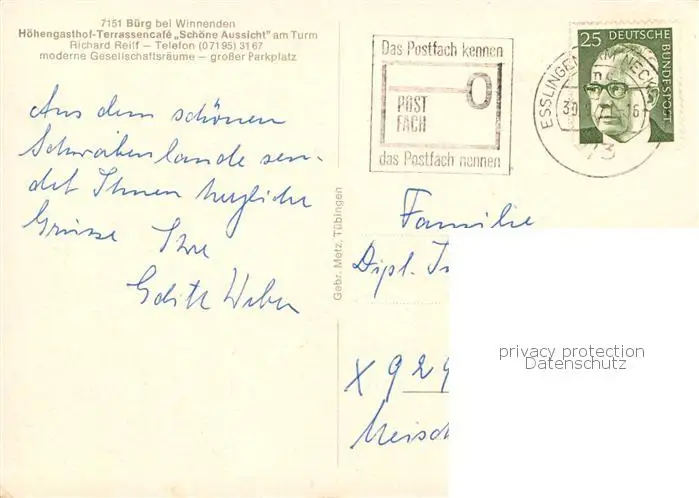 7151 Bürg bei Winnenden
Höhengasthof-Terrassencafé „Schöne Aussicht" am Turm
Richard Reiff — Telefon (07195) 3167
moderne Gesellschaftsräume — großer Parkplatz
Aus dem schönen
Schwabenlande sen-
det Ihnen herzliche
Grüsse Ihre
Edith Weber
Gebr. Metz, Tübingen
Das Postfach kennen
POST
FACH
das Postfach nennen
ESSLINGEN AM NECK
73
25 DEUTSCHE
BUNDESPOST
Familie
Dipl. I
X 924
privacy protection
Datenschutz